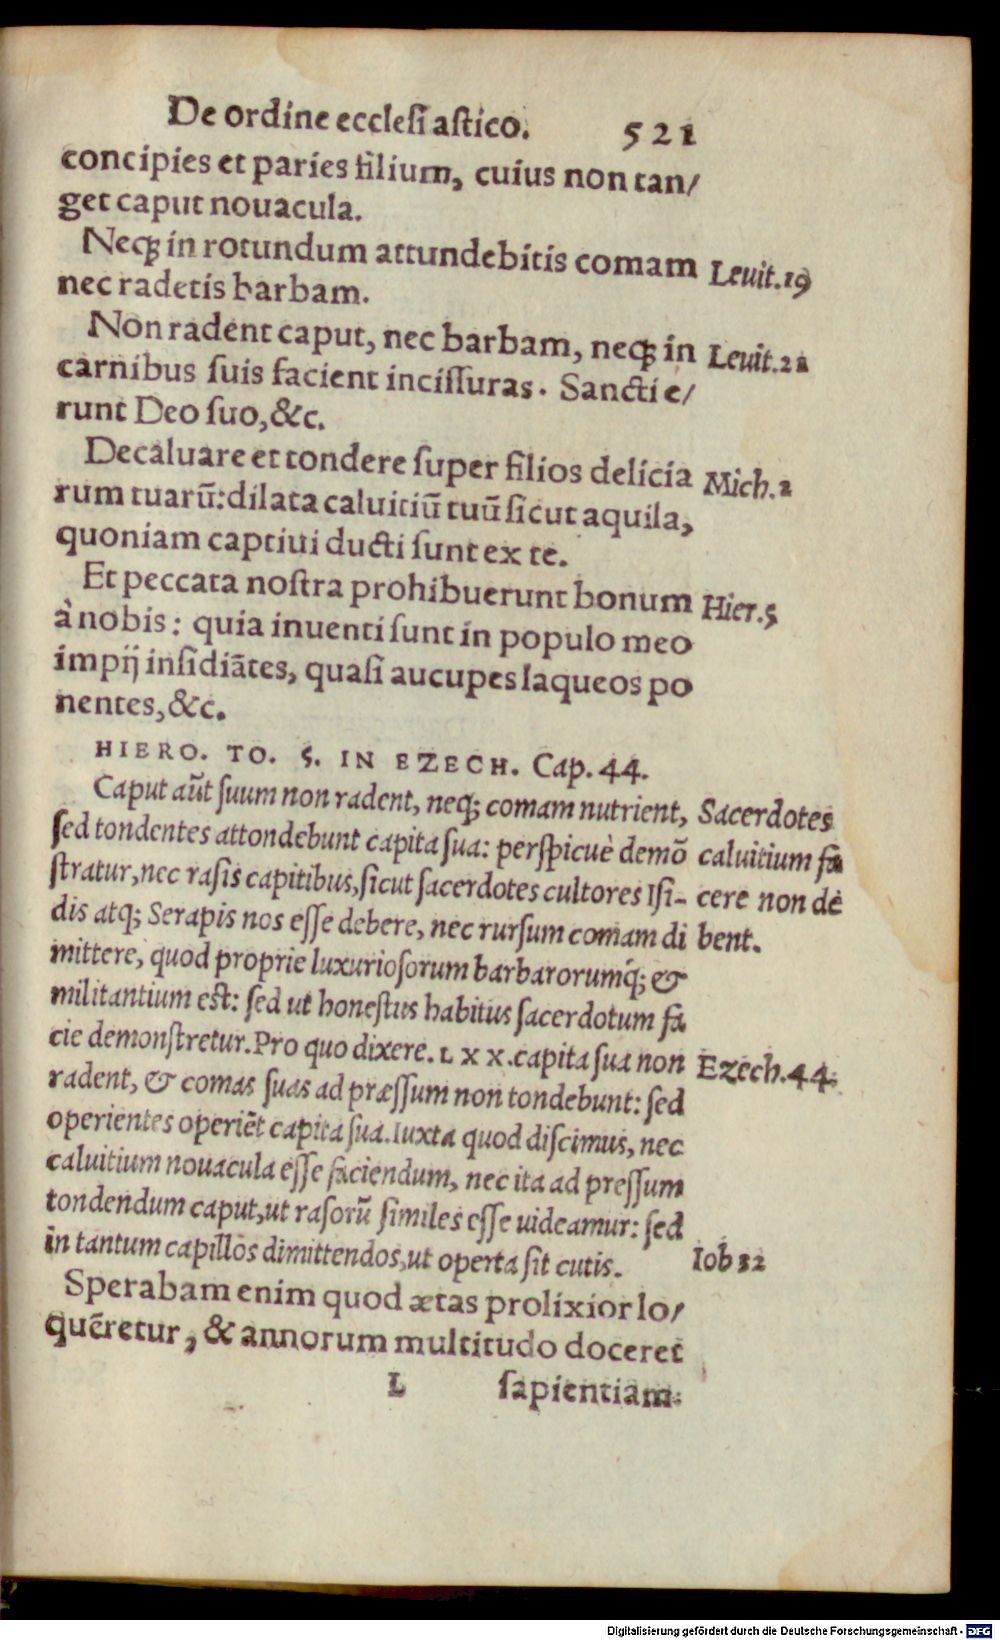 De ordine ecclesiastico. 521
concipies et paries filium, cuius non tan/
get caput nouacula.
Neqꝫ in rotundum attundebitis comam Leuit.19
nec radetis barbam.
Non radent caput, nec barbam, neqꝫ in Leuit.21
carnibus suis facient incissuras. Sancti e/
runt Deo suo, &c.
Decaluare et tondere super filios delicia Mich.2
rum tuarū: dilata caluitiū tuū sicut aquila,
quoniam captiui ducti sunt ex te.
Et peccata nostra prohibuerunt bonum Hier.5
à nobis: quia inuenti sunt in populo meo
impij insidiātes, quasi aucupes laqueos po
nentes, &c.
HIERO. TO. 5. IN EZECH. Cap. 44.
Caput aūt suum non radent, neqꝫ comam nutrient, Sacerdotes
sed tondentes attondebunt capita sua: perspicuè demō caluitium fa
stratur, nec rasis capitibus, sicut sacerdotes cultores Isi- cere non dè
dis atqꝫ Serapis nos esse debere, nec rursum comam di bent.
mittere, quod proprie luxuriosorum barbarorumqꝫ; &
militantium est: sed ut honestus habitus sacerdotum fa
cie demonstretur. Pro quo dixere. LXX. capita sua non Ezech.44.
radent, & comas suas ad præssum non tondebunt: sed
operientes operiēt capita sua. Iuxta quod discimus, nec
caluitium nouacula esse faciendum, nec ita ad pressum
tondendum caput, ut rasorū similes esse uideamur: sed
in tantum capillos dimittendos, ut operta sit cutis. Iob 32
Sperabam enim quod ætas prolixior lo/
quēretur, & annorum multitudo doceret
L sapientiam.
Digitalisierung gefördert durch die Deutsche Forschungsgemeinschaft - DFG